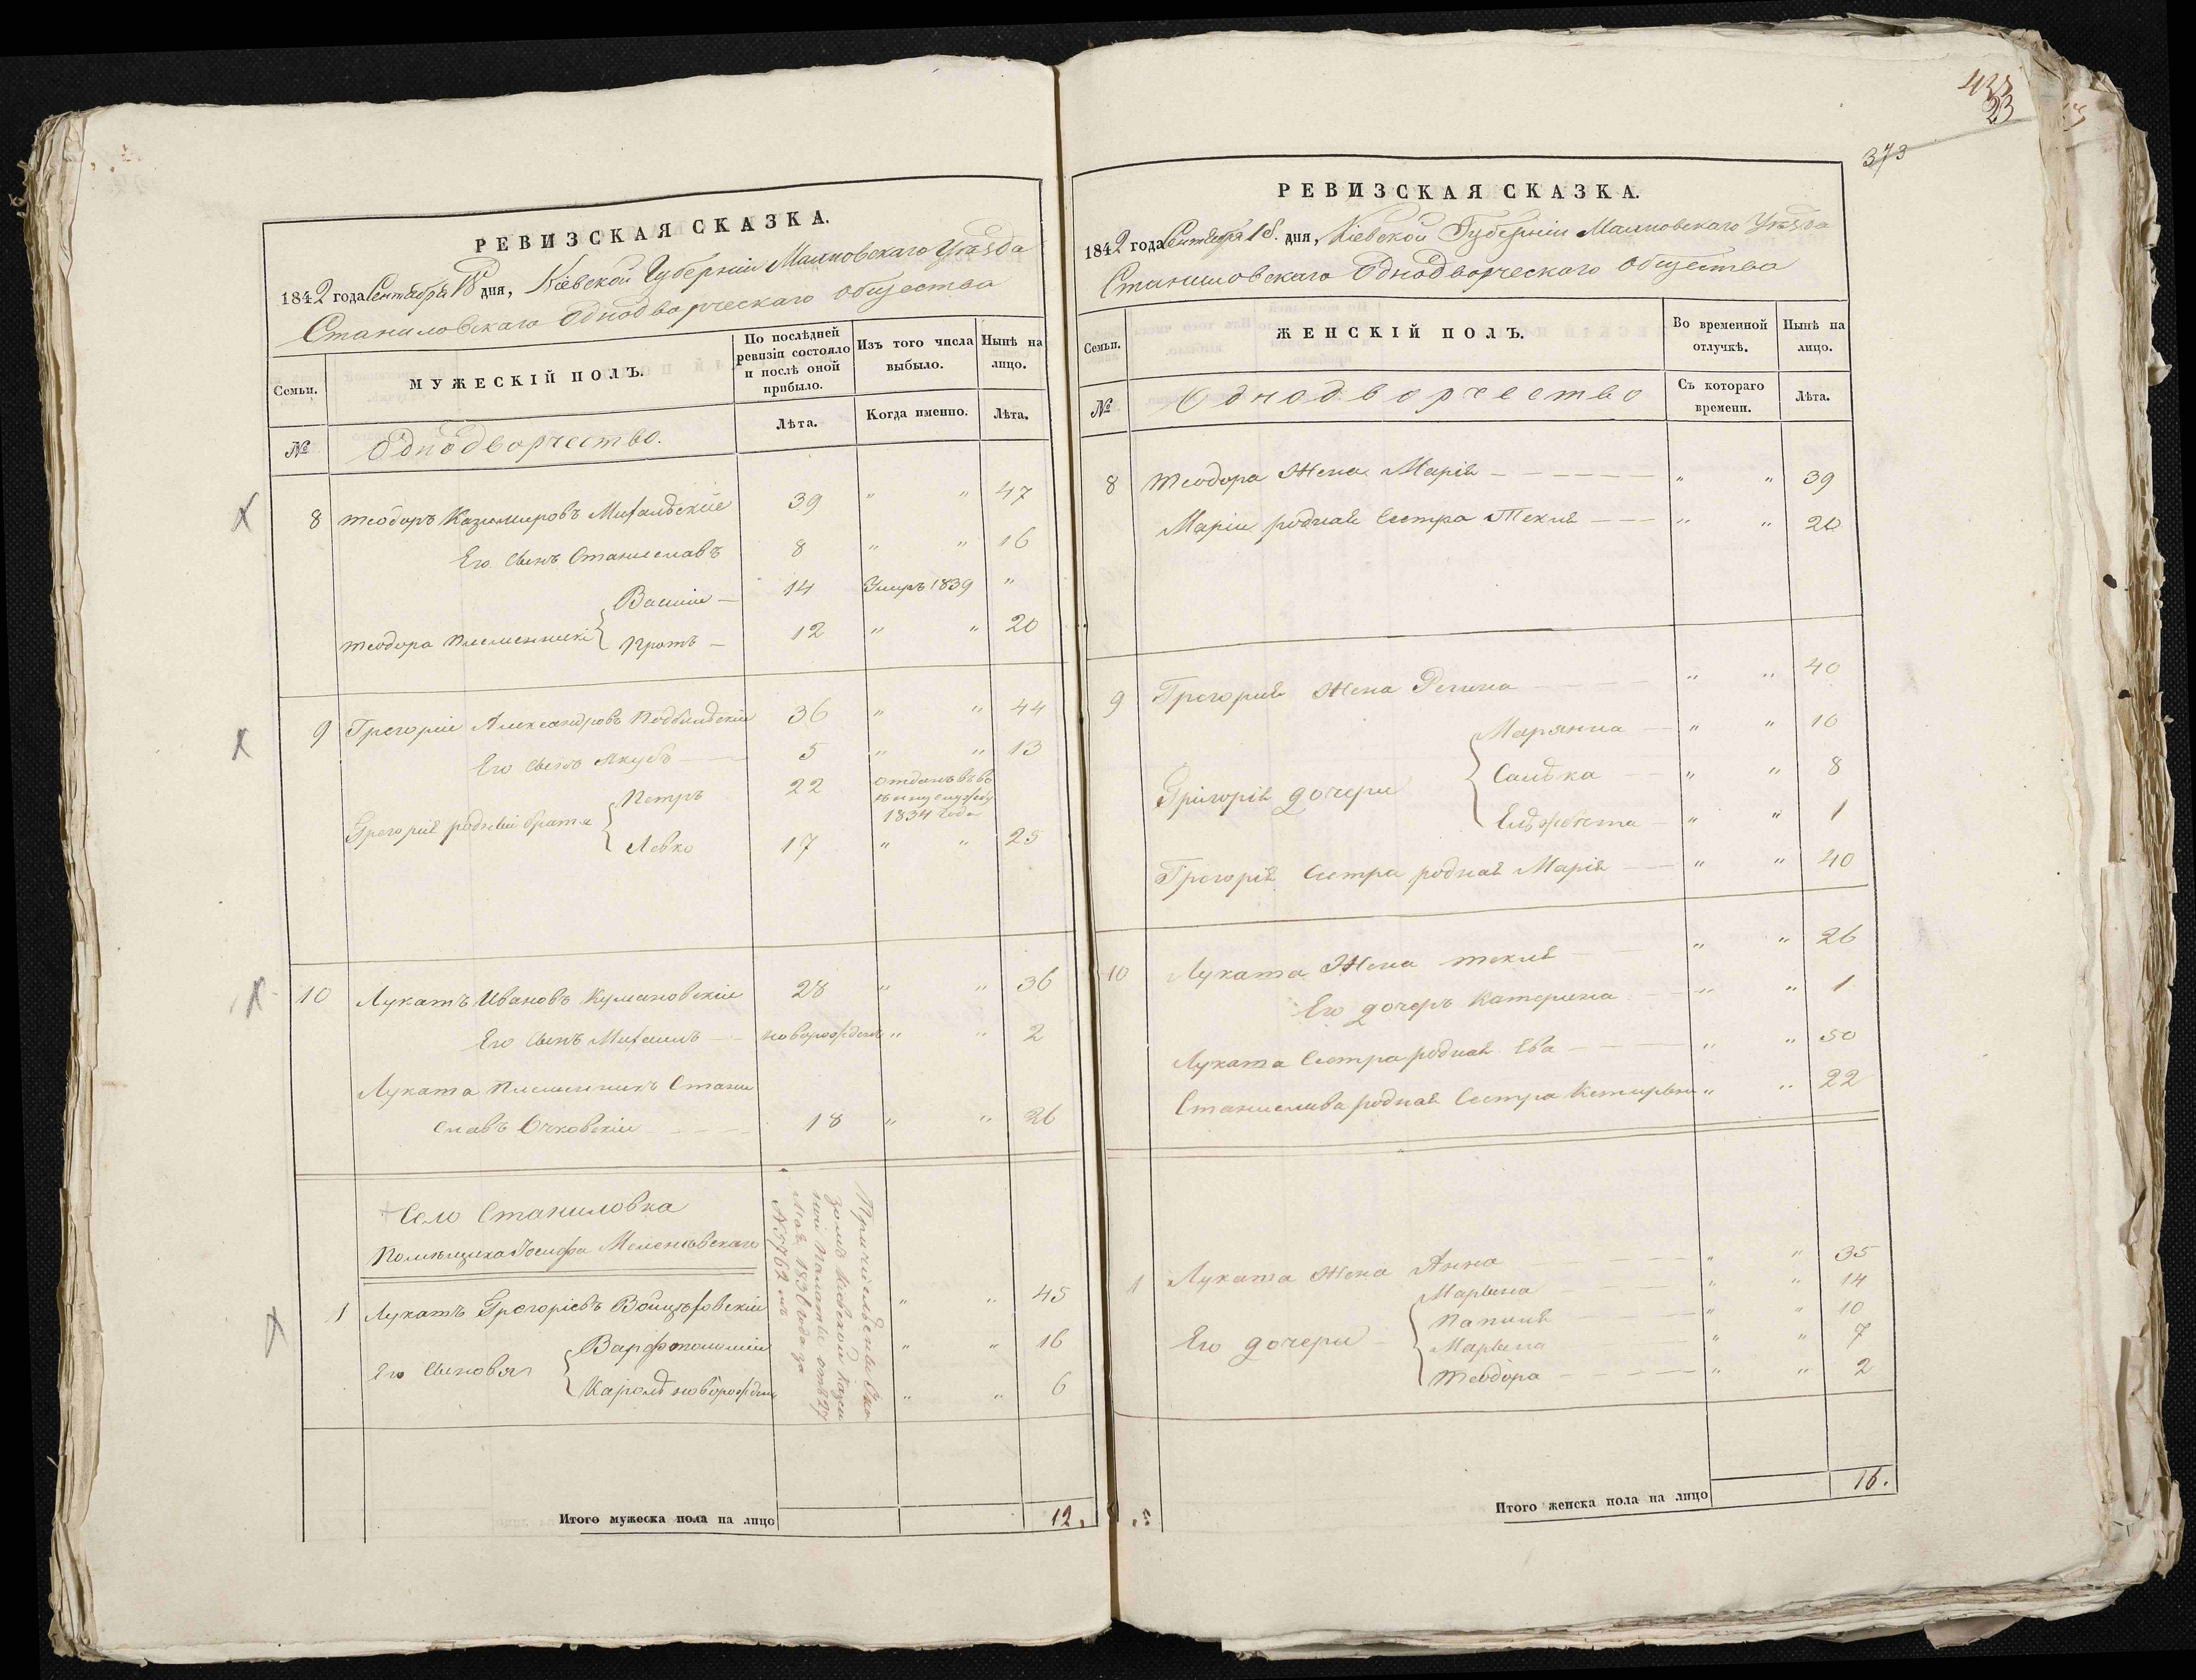 РЕВИЗСКАЯ СКАЗКА.
1842 года Сентября 18 дня, Кіевской Губерніи Махновскаго Уѣзда
Станиловскаго Однодворческаго Общества
Семьи.
МУЖЕСКІЙ ПОЛЪ.
По послѣдней ревизіи состояло и послѣ оной прибыло.
Изъ того числа выбыло.
Нынѣ на лицо.
№
Однодворчество.
Лѣта.
Когда именно.
Лѣта.
8 Теодоръ Казимировъ Михальскій 39 " " 47
Его Сынъ Станиславъ 8 " " 16
Василій — 14 Умеръ 1839 "
Теодора племянники
Протъ — 12 " " 20
9 Грегорій Александровъ 36 " " 44
Его Сынъ Якубъ 5 " " 13
Петръ 22 отданъ въ во
1834 года
Грегорія родныи братья
Левко 17 " " 25
10 Лукашъ Ивановъ Кумановскій 28 " " 36
Его Сынъ Михаилъ новорожден " " 2
Лукаша Племянникъ Стани
славъ Очковскій 18 " " 26
Село Станиловка
Помѣщика Іосифа
Причисленъ
Кіевской Казен
ной Палаты отъ 27
Мая 1836 года за
№ 5762 мъ
1 Лукашъ Грегоріевъ Войцѣховскій " " 45
Варфоломей " " 16
Его Сыновья
Кароль новорожден " " 6
Итого мужеска пола на лицо 12.
423
23
373
РЕВИЗСКАЯ СКАЗКА.
1842 года Сентября 18. дня, Кіевской Губерніи Махновскаго Уѣзда
Станиловскаго Однодворческаго Общества
Семьи.
ЖЕНСКІЙ ПОЛЪ.
Во временной отлучкѣ.
Нынѣ на лицо.
№
Однодворчество
Съ котораго времени.
Лѣта.
8 Теодора Жена Марія " " 39
Маріи родная Сестра Текля " " 20
9 Грегорія Жена Регина " " 40
Марянна " " 10
Грігорія дочери
Салька " " 8
Ельжбета " " 1
Грегорія Сестра родная Марія " " 40
10 Лукаша Жена Текля " " 26
Его дочерь Катерина " " 1
Лукаша Сестра родная Ева " " 50
Станислава родная Сестра " " 22
1 Лукаша Жена Анна " " 35
Марьяна " " 14
" " 10
Его дочери
Марьяна " " 7
Теодора " " 2
Итого женска пола на лицо 16.